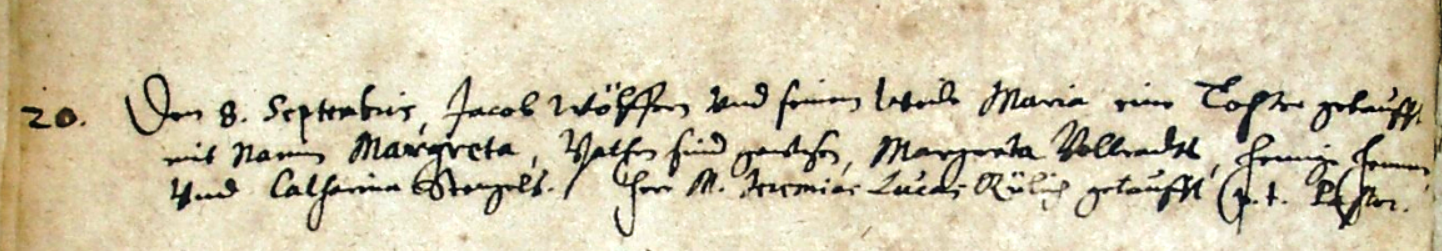 20. Den 8. Septembris, Jacob Wölffen und seinem Weibe Maria eine Tochter getaufft
mit Namen Margreta, Pathen sind gewesen, Margreta Vollradts,
und Catharina Stengels. / Herr M. Jeremias Lucas getaufft (p. t. Pastor.